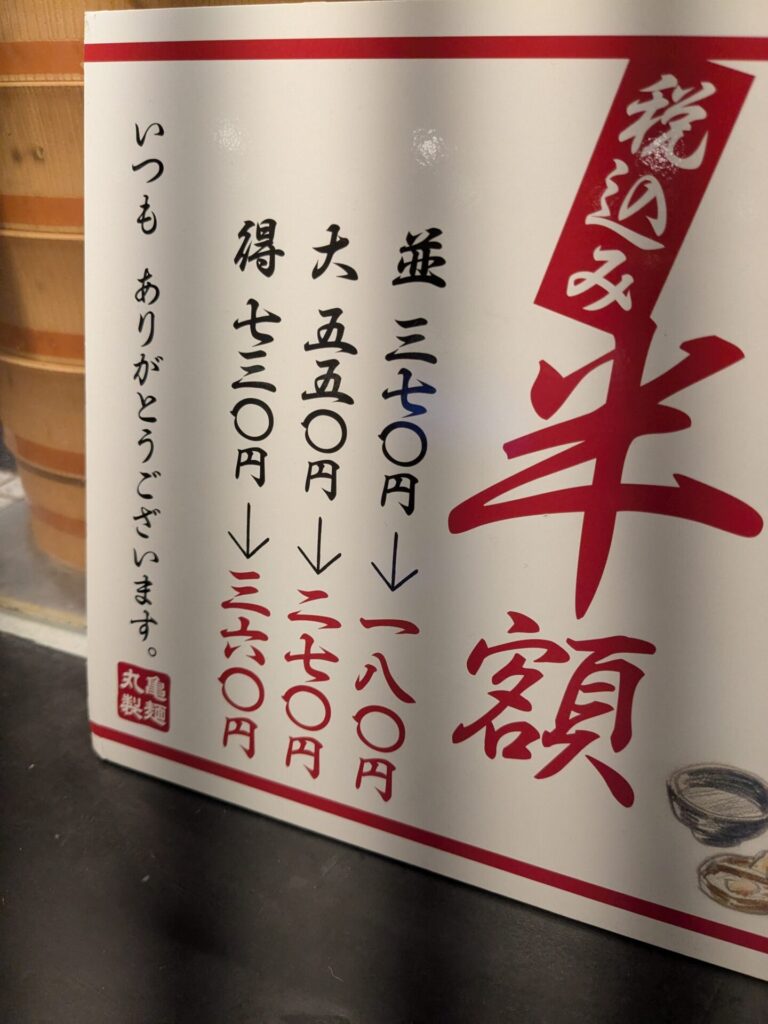 税込み
半額
並 三七〇円→一八〇円
大 五五〇円→二七〇円
得 七三〇円→三六〇円
いつも ありがとうございます。
丸亀製麺